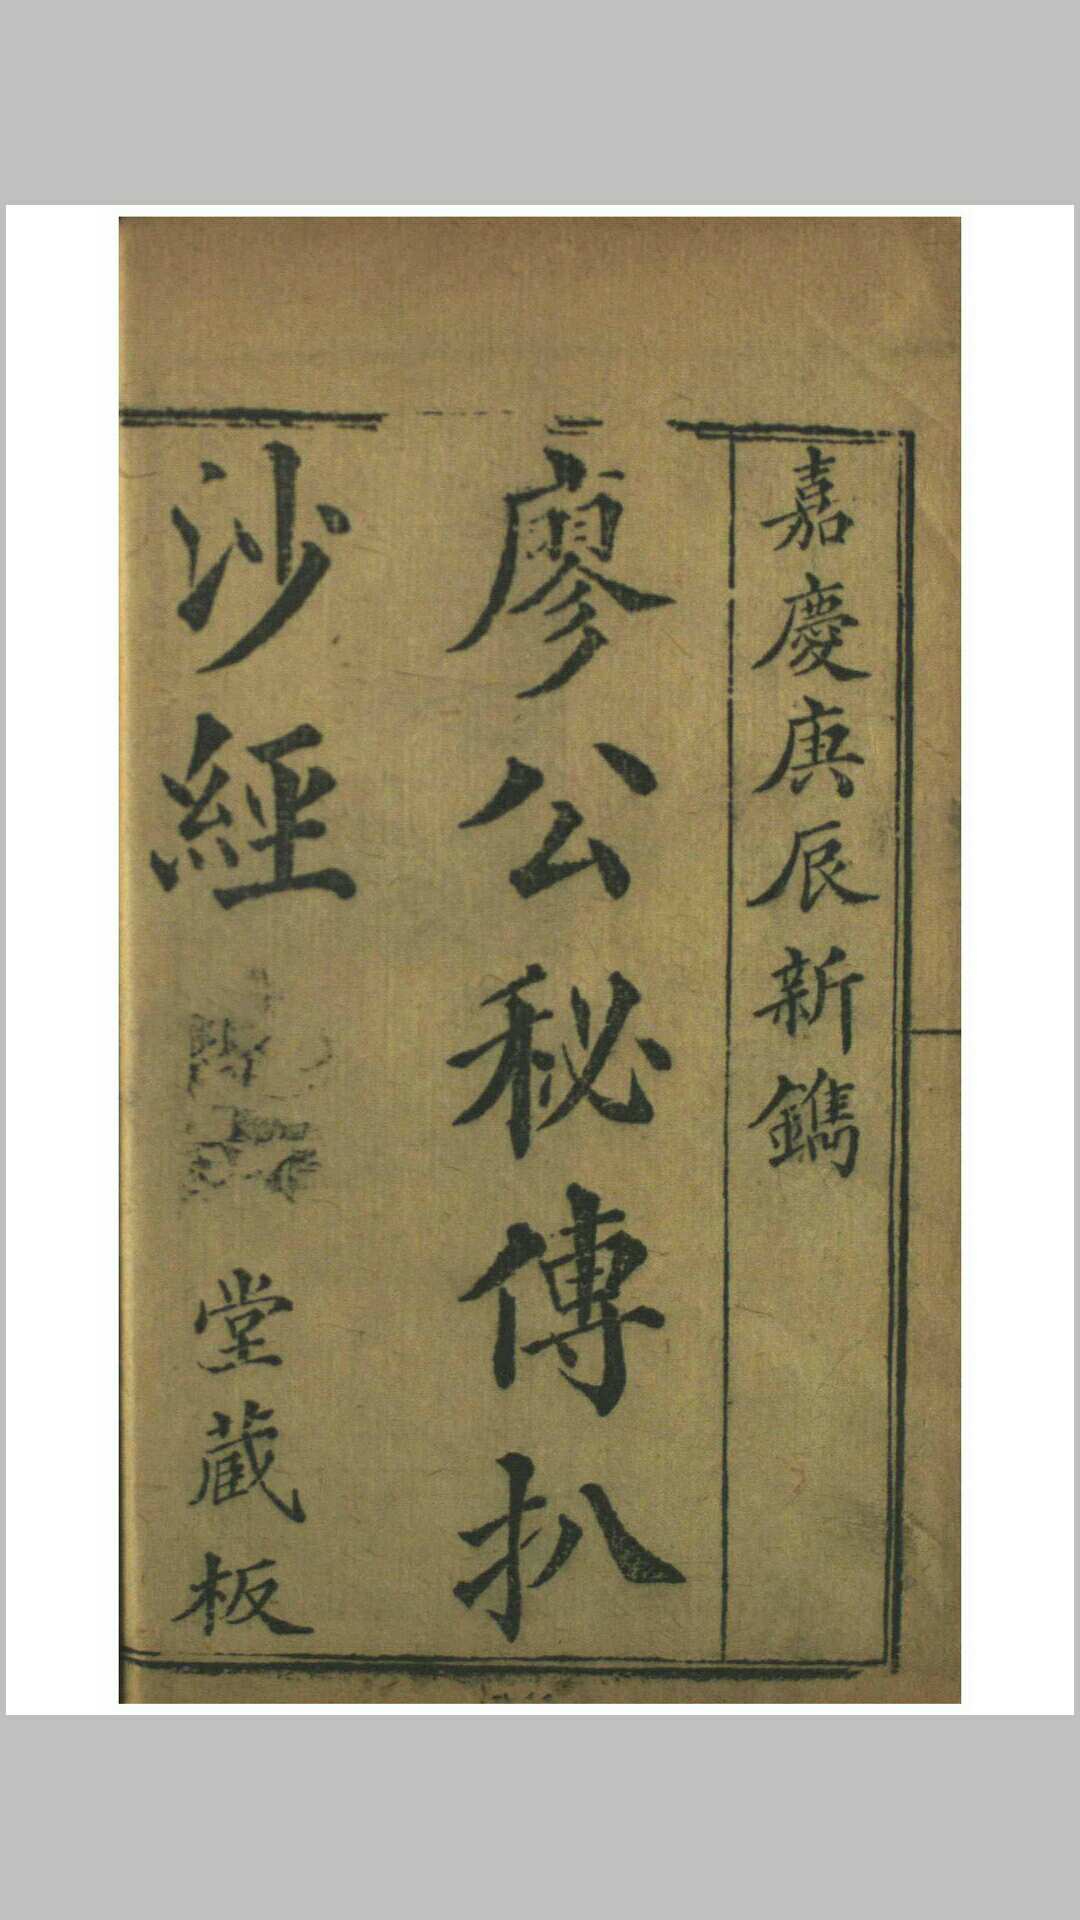 嘉慶庚辰新鐫
廖公秘傳扒
沙經
堂藏板